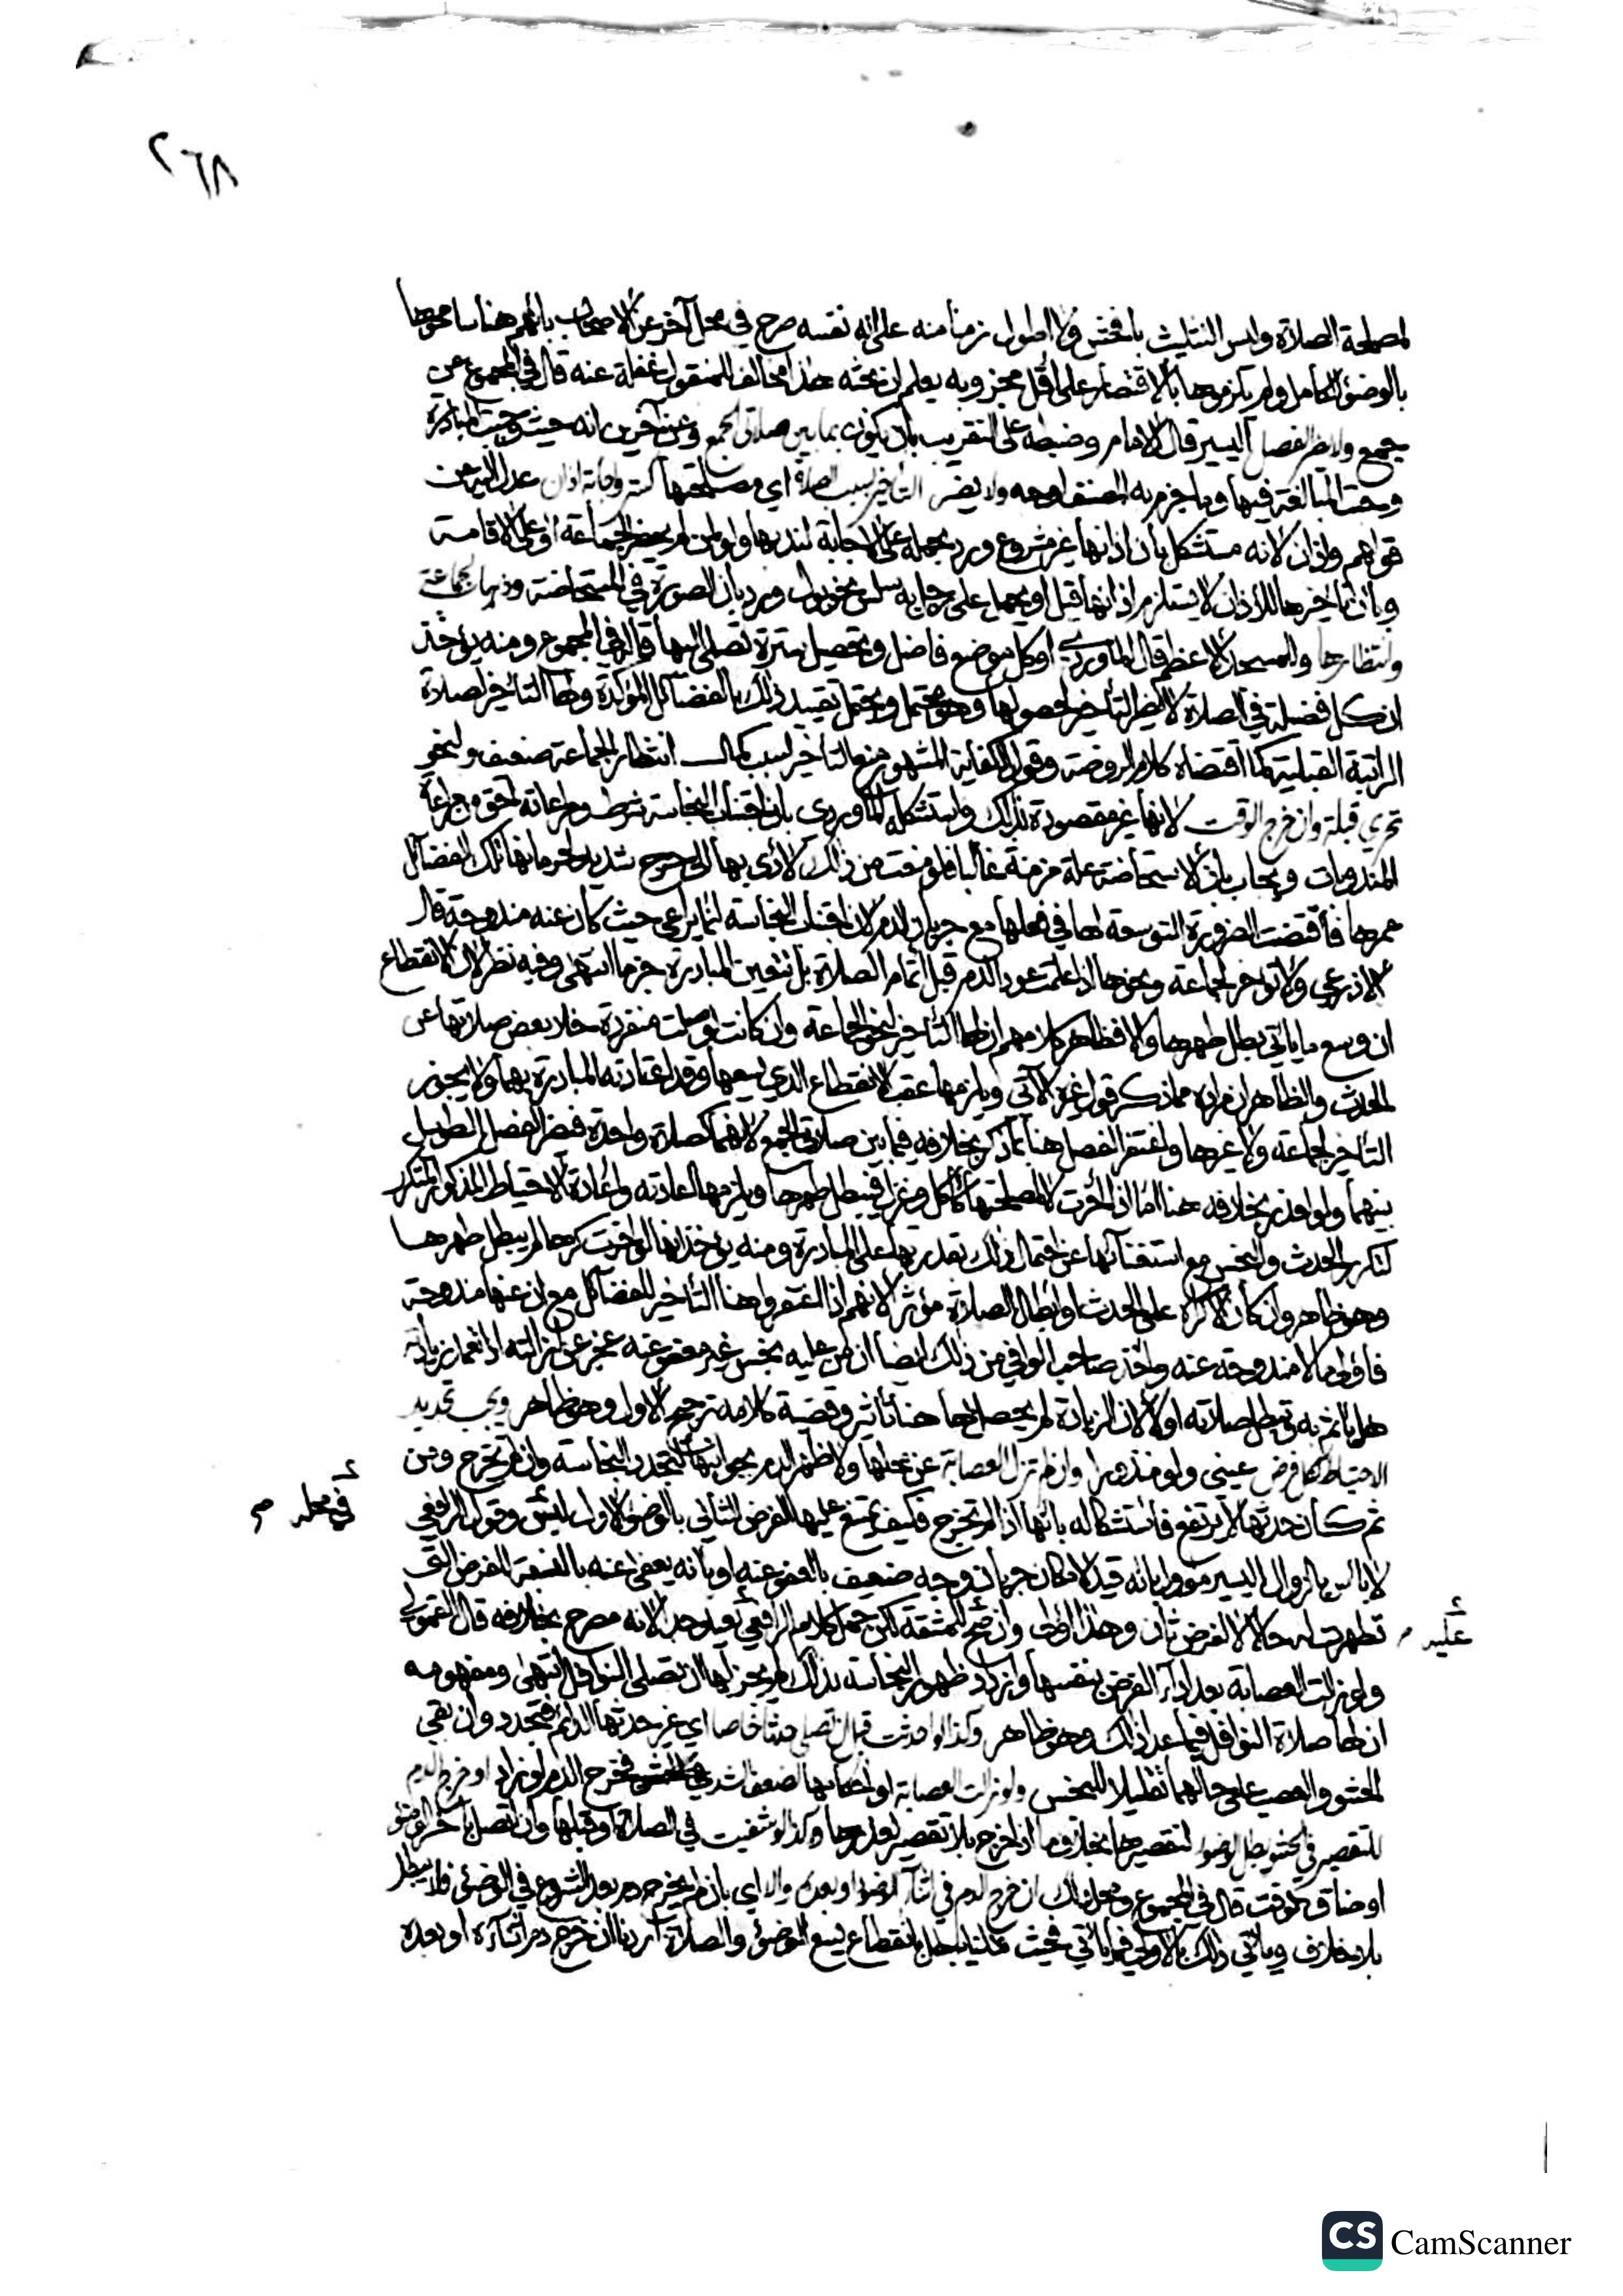 ٢٦٨
لمصلحة الصلاة وليس التثليث بافحش ولا اطول زمنا منه على انه نفسه صرح في محل آخر عن الاصحاب بانهم هنا سامحوها
بالوضوء الكامل ولم يلزموها بالاقتصار على اقل مجزء وبه يعلم ان بحثه هذا مخالف للمنقول غفلة عنه قال في المجموع عن
جمع ولا يضر الفصل اليسير قال الامام وضبطه على التقريب بان يكون بما بين صلاتي الجمع وعن آخرين انه حيث وجبت المبادرة
وجبت المبالغة فيها وما جزم به المصنف اوجه ولا يضر التاخير لسبب الصلاة اي مصلحتها كستر واجابة اذان عدل اليه عن
قولهم واذان لانه مستشكل بان اذانها غير مشروع ورد بحمله على الاجابة لندبها ولو لمن لم يحضر الجماعة او على الاقامة
وبان تاخيرها للاذان لا يستلزم اذانها قيل او يحمل على رجل به سلس نحو بول ويرد بان الصورة في المستحاضة وذهاب لجماعة
وانتظارها والمسجد الاعظم قال الماوردي او كل موضع فاضل وتحصيل سترة تصلي اليها قاله في المجموع ومنه يؤخذ
ان كل فضيلة في الصلاة لا يضر التأخير لحصولها وهو محتمل ويحتمل تقييد ذلك بالفضائل المؤكدة ولها التاخير لصلاة
الراتبة القبلية كما اقتضاه كلام الروضة وقول الكفاية المشهور منع التاخير لسبب كمال انتظار الجماعة ضعيف ولنحو
تحري قبلة وان خرج الوقت لانها غير مقصودة بذلك واستشكله الماوردي بان اجتناب النجاسة شرط ومراعاته احق من مراعاة
المندوبات ويجاب بان الاستحاضة علة مزمنة غالبا فلو منعت من ذلك لادى بها الى حرج شديد ولحرمانها تلك الفضائل
عمرها فاقتضت الضرورة التوسعة لها في فعلها مع جريان الدم لان اجتناب النجاسة انما يراعى حيث كان عنه مندوحة قال
الاذرعي ولا تؤخر لجماعة ونحوها اذا علمت عود الدم قبل اتمام الصلاة بل تتعين المبادرة جزما انتهى وفيه نظر لان الانقطاع
ان وسع ما ياتي بطل طهرها والا فظاهر كلامهم ان لها التأخير لنحو الجماعة وان كانت لو صلت منفردة خلا بعض صلاتها عن
الحدث والظاهر ان مراده مما ذكر قول غيره الآتي ويلزمها عقب الانقطاع الذي يسعها وقد اعتادته المبادرة بها ولا يجوز
التاخير لجماعة ولا غيرها واغتفر الفصل هنا بما ذكر بخلافه فيما بين صلاتي الجمع لانهما كصلاة واحدة فضر الفصل الطويل
بينهما ولو لعذر بخلافه هنا اما اذا أخرت لا لمصلحتها كأكل وغزل فيبطل طهرها ويلزمها اعادته واعادة الاحتياط المذكور لتكرر
لتكرر الحدث والنجس مع استغنائها عن احتمال ذلك بقدرتها على المبادرة ومنه يؤخذ انها لو اخرت كرها لم يبطل طهرها
وهو ظاهر وان كان الاكراه على الحدث او ابطال الصلاة مؤثرا لانهم اذا اغتفروا هنا التأخير للفضائل مع ان عنها مندوحة
فاولى ما لا مندوحة عنه واخذ صاحب الوافي من ذلك ايضا ان من عليه نجس غير معفو عنه عجز عن ازالته اذا تعمد زيادته
هل ياثم به وتبطل صلاته او لا لان الزيادة لم يحصل لها هنا تأثير وقضية كلامه ترجيح الاول وهو ظاهر ويجب تجديد
الاحتياط لكل فرض عيني ولو منذورا وان لم تزل العصابة عن محلها ولا ظهر الدم بجوانبها لتجدد النجاسة وان لم تخرج ومن
ثم كان حدثها لا يرتفع فاستشكاله بانها اذا لم تخرج فكيف يمتنع عليها الفرض الثاني بالوضوء الاول ليس وقول الرافعي
في محله صح
لا باس بالزوال اليسير مؤول بانه قيد لامكان جريان وجه ضعيف بالعفو عنه او بانه يعفى عنه بالنسبة للفرض التي
تطهرت له حالا لا لفرض ثان وهذا اولى وان صح للمشقة لكن حمل كلام الرافعي عليه بعيد جدا لانه مصرح بخلافه قال القمولي
عليه صح
ولو زالت العصابة بعد اداء الفرض بنفسها وازداد ظهور النجاسة بذلك لم يجز لها ان تصلي النوافل انتهى ومفهومه
ان لها صلاة النوافل فيما عدا ذلك وهو ظاهر وكذا لو احدثت قبل ان تصلي حدثا خاصا اي غير حدثها الدائم فتجدد وان بقي
الحشو والعصب على حالهما تقليلا للنجس ولو زالت العصابة او احكامها لضعف الشد فخرج الدم لو زاد او خرج الدم
للتقصير في الحشو بطل الوضوء لتقصيرها بخلاف ما اذا خرج بلا تقصير لعذرها وكذا لو شفيت في الصلاة او قبلها وان اتصل بآخر الوضوء
او ضاق الوقت قال في المجموع ومحل ذلك ان خرج الدم في اثناء الوضوء او بعده والا اي بان لم يخرج دم بعد الشروع في الوضوء فلا يبطل
بلا خلاف وياتي ذلك بالاولى فيما ياتي فحيث حكمنا ببطلانه بانقطاع يسع الوضوء والصلاة اردنا ان خرج دم اثناءه او بعده
CS CamScanner